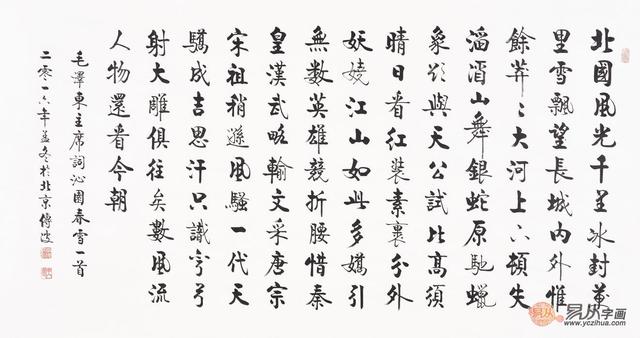 北國風光千里冰封萬
里雪飄望長城內外惟
餘莽〻大河上下頓失
滔滔山舞銀蛇原馳蠟
象欲與天公試比高須
晴日看紅裝素裹分外
妖嬈江山如此多嬌引
無數英雄競折腰惜秦
皇漢武略輸文采唐宗
宋祖稍遜風騷一代天
驕成吉思汗只識彎弓
射大雕俱往矣數風流
人物還看今朝
毛澤東主席詞沁園春雪一首
二零一六年孟冬於北京傅波
易从
易从字画
www.yczihua.com